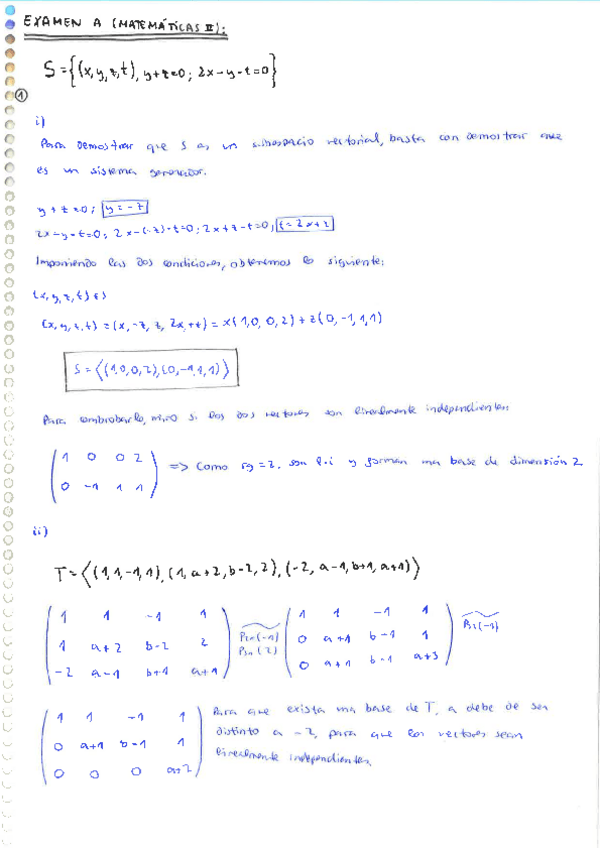 EXAMEN A (MATEMÁTICAS II):
S={(x,y,z,t), y+z=0; 2x-y-t=0}
①
i)
Para demostrar que S es un subespacio vectorial, basta con demostrar que
es un sistema generador.
y+z=0; y=-z
2x-y-t=0; 2x-(-z)-t=0; 2x+z-t=0; t=2x+z
Imponiendo las dos condiciones, obtenemos lo siguiente:
(x,y,z,t) ∈ S
(x,y,z,t)=(x,-z,z,2x+z)=x(1,0,0,2)+z(0,-1,1,1)
S=⟨(1,0,0,2),(0,-1,1,1)⟩
Para comprobarlo, miro si los dos vectores son linealmente independientes
1 0 0 2
0 -1 1 1
=> Como rg=2, son l.i y forman una base de dimensión 2
ii)
T=⟨(1,1,-1,1),(1,a+2,b-2,2),(-2,a-1,b+1,a+1)⟩
1 1 -1 1
1 a+2 b-2 2
-2 a-1 b+1 a+1
P21(-1)
P31(2)
1 1 -1 1
0 a+1 b-1 1
0 a+1 b-1 a+3
P32(-1)
1 1 -1 1
0 a+1 b-1 1
0 0 0 a+2
Para que exista una base de T, a debe de ser
distinto a -2, para que los vectores sean
linealmente independientes.